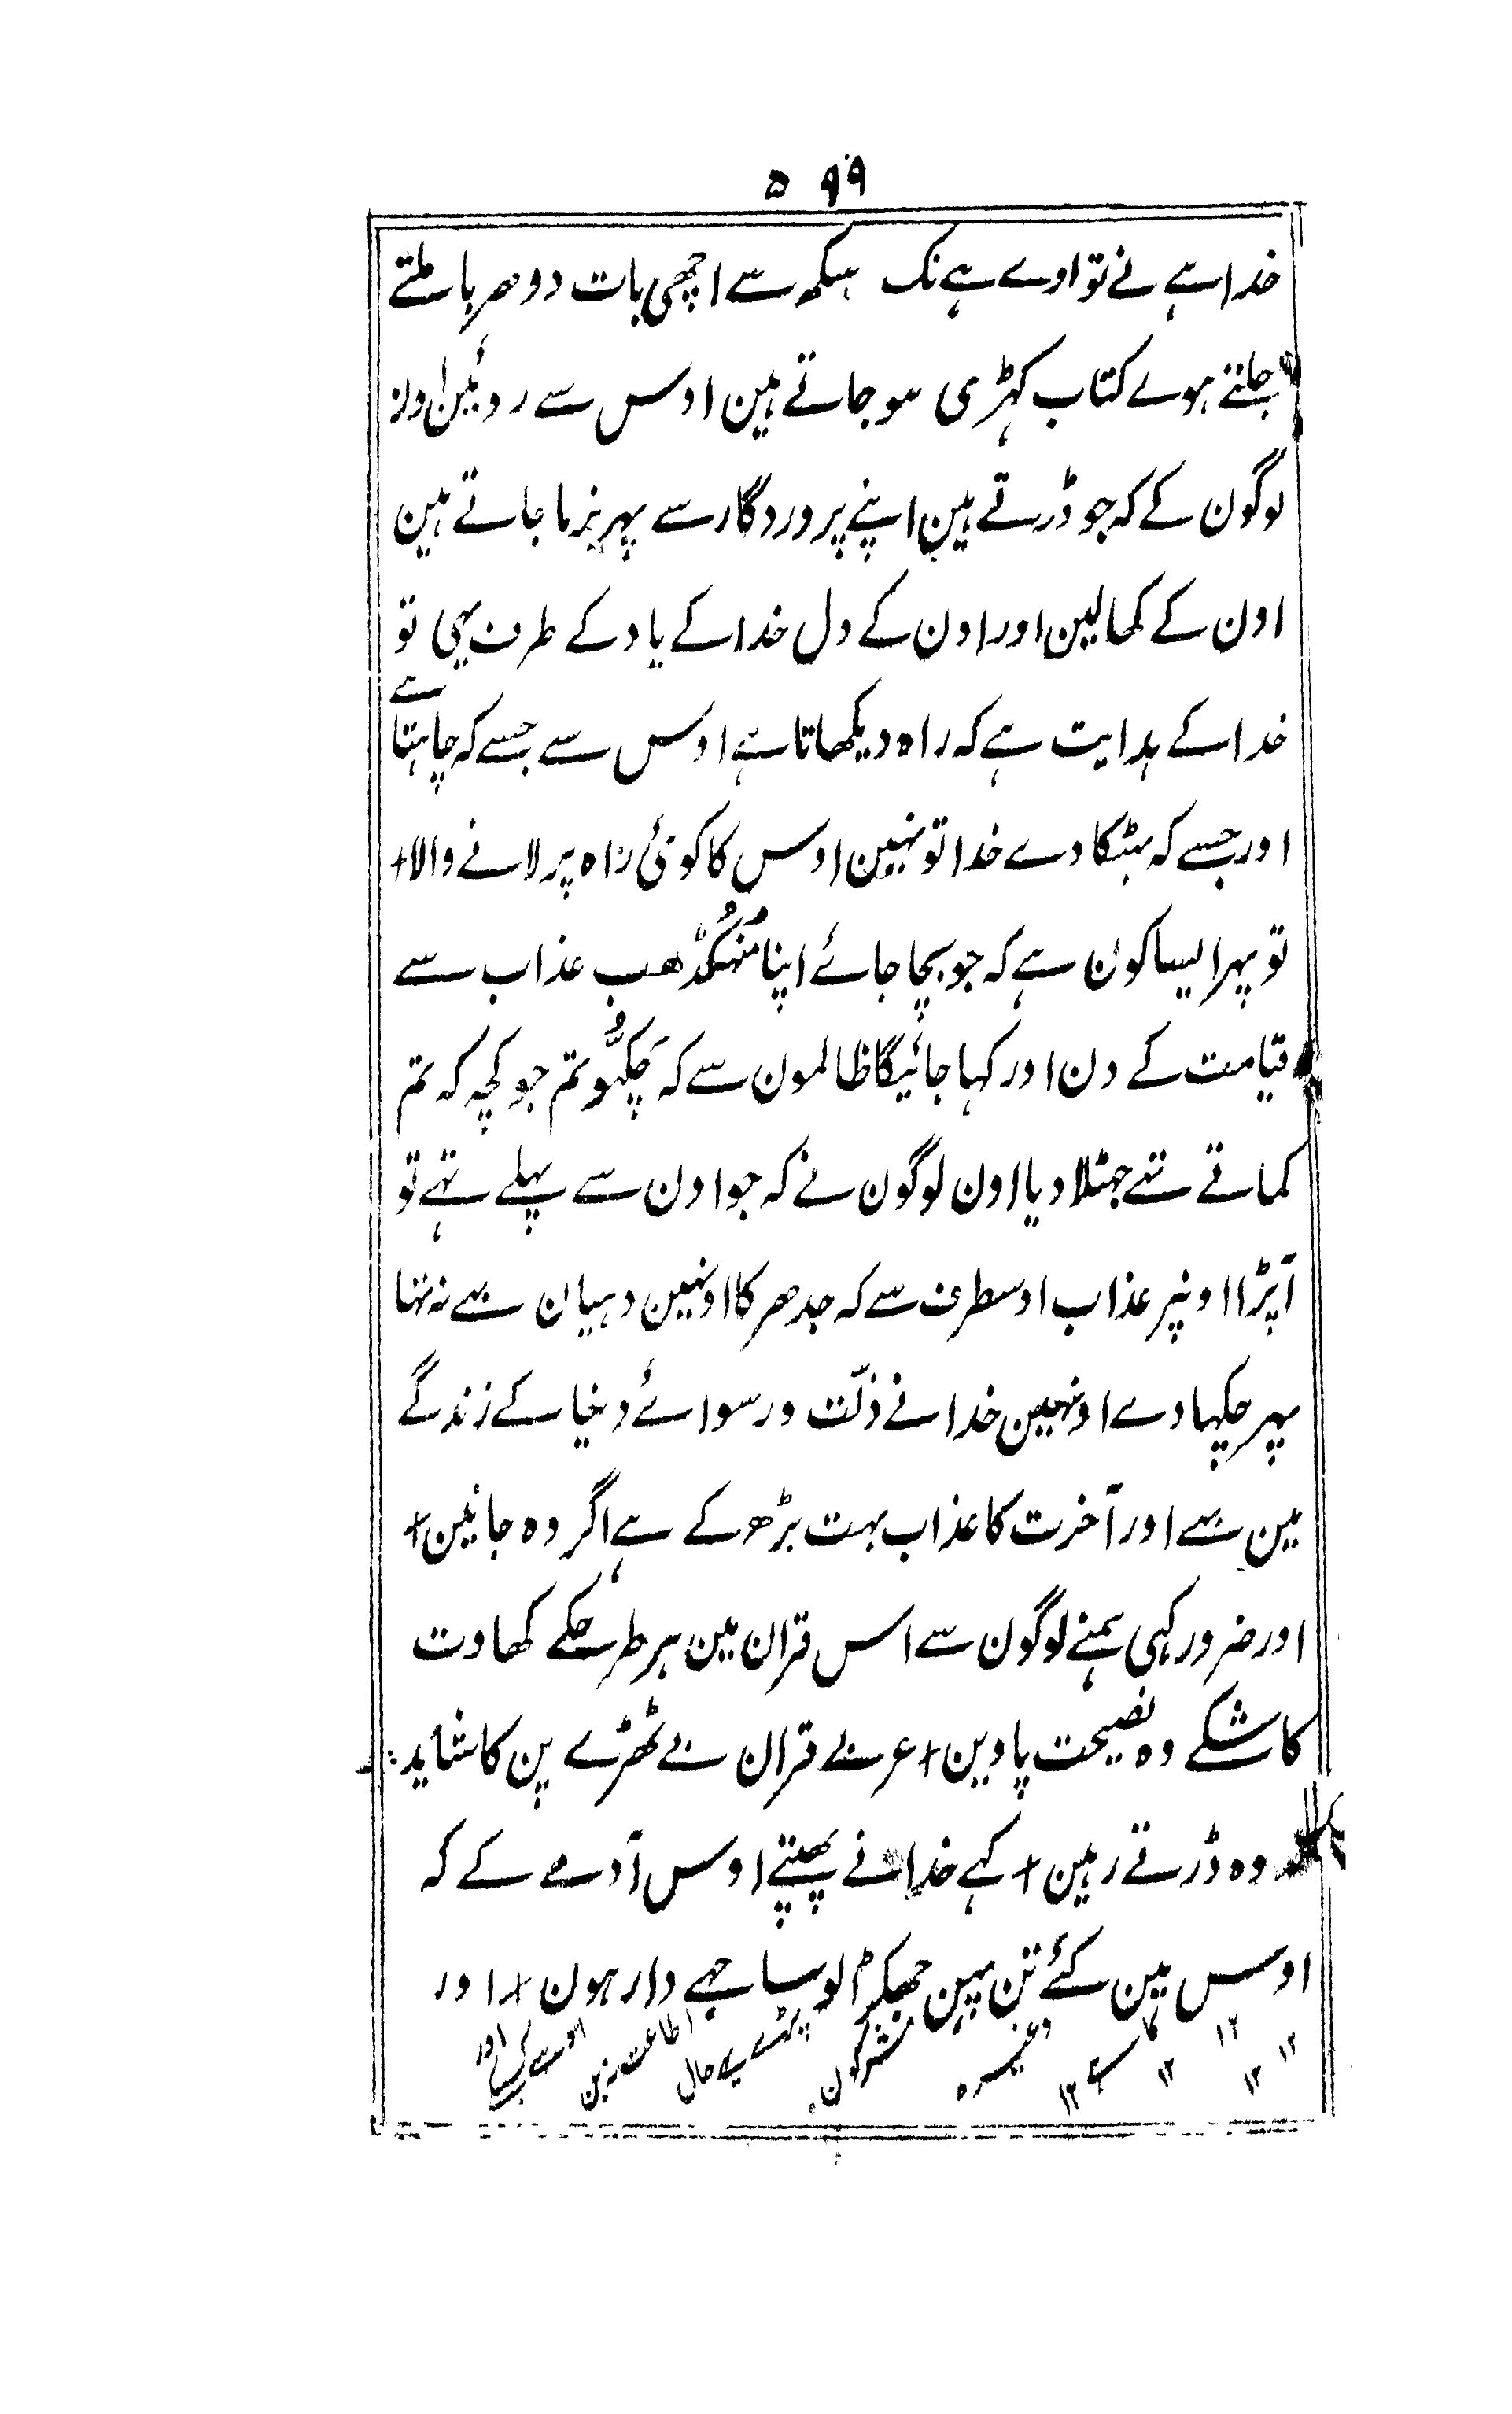 ۵۹۹
خدا ہے نے تو اوے ہے نک سکھ سے اچھی بات دوھر با ملتے
جلتے ہوے کتاب کہڑی ہو جاتے ہین اوس سے روئین اون
لوگون کے کہ جو ڈرتے ہین اپنے پروردگار سے پہر نرما جاتے ہین
اون کے کھالین اور اون کے دل خدا کے یاد کے طرف یہی تو
خدا کے ہدایت ہے کہ راہ دیکھاتا ہے اوس سے جسے کہ چاہتا ہے
اور جسے کہ بہٹکا دے خدا تو نہین اوس کا کوئی راہ پر لانے والا +
تو پہر ایسا کون ہے کہ جو بچا جائے اپنا مُنہ کُڈھب عذاب سے
قیامت کے دن اور کہا جائیگا ظالمون سے کہ چکہُو تم جو کچہ کہ تم
کماتے تہے جہٹلا دیا اون لوگون نے کہ جو اون سے پہلے تہے تو
آپڑا اونپر عذاب اوسطرف سے کہ جدھر کا اونہین دہیان ہے نہ تہا
پہر چکہا دے اونہین خدا نے ذلّت و رسوائے دنیا کے زندگے
مین ہے اور آخرت کا عذاب بہت بڑھ کے ہے اگر وہ جانین +
اور ضرور کہی ہمنے لوگون سے اس قران مین ہر طرحکے کھاوت
کاشکے وہ نصیحت پاوین + عربے قران بے ٹھڑے پن کا شاید
وہ ڈرتے رہین + کہے خدا نے پھبتے اوس آدمے کے کہ
اوس مین کئے تن ہین جھگڑالو سا جہے دار ہون + اور
۱۲ ۱۲ ۱۲ ۱۲ کا ہے ۱۲ وغیرہ مشرکون حال اطاعت اور